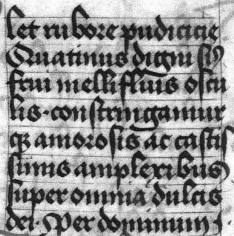 let rubore pudicicie
Quatinus digni si⁹
frui mellifluis oscu
lis · constringamur
q₃ amorosis ac castis
simis amplexibus
super omnia dulcis
dei · Per dominum ·